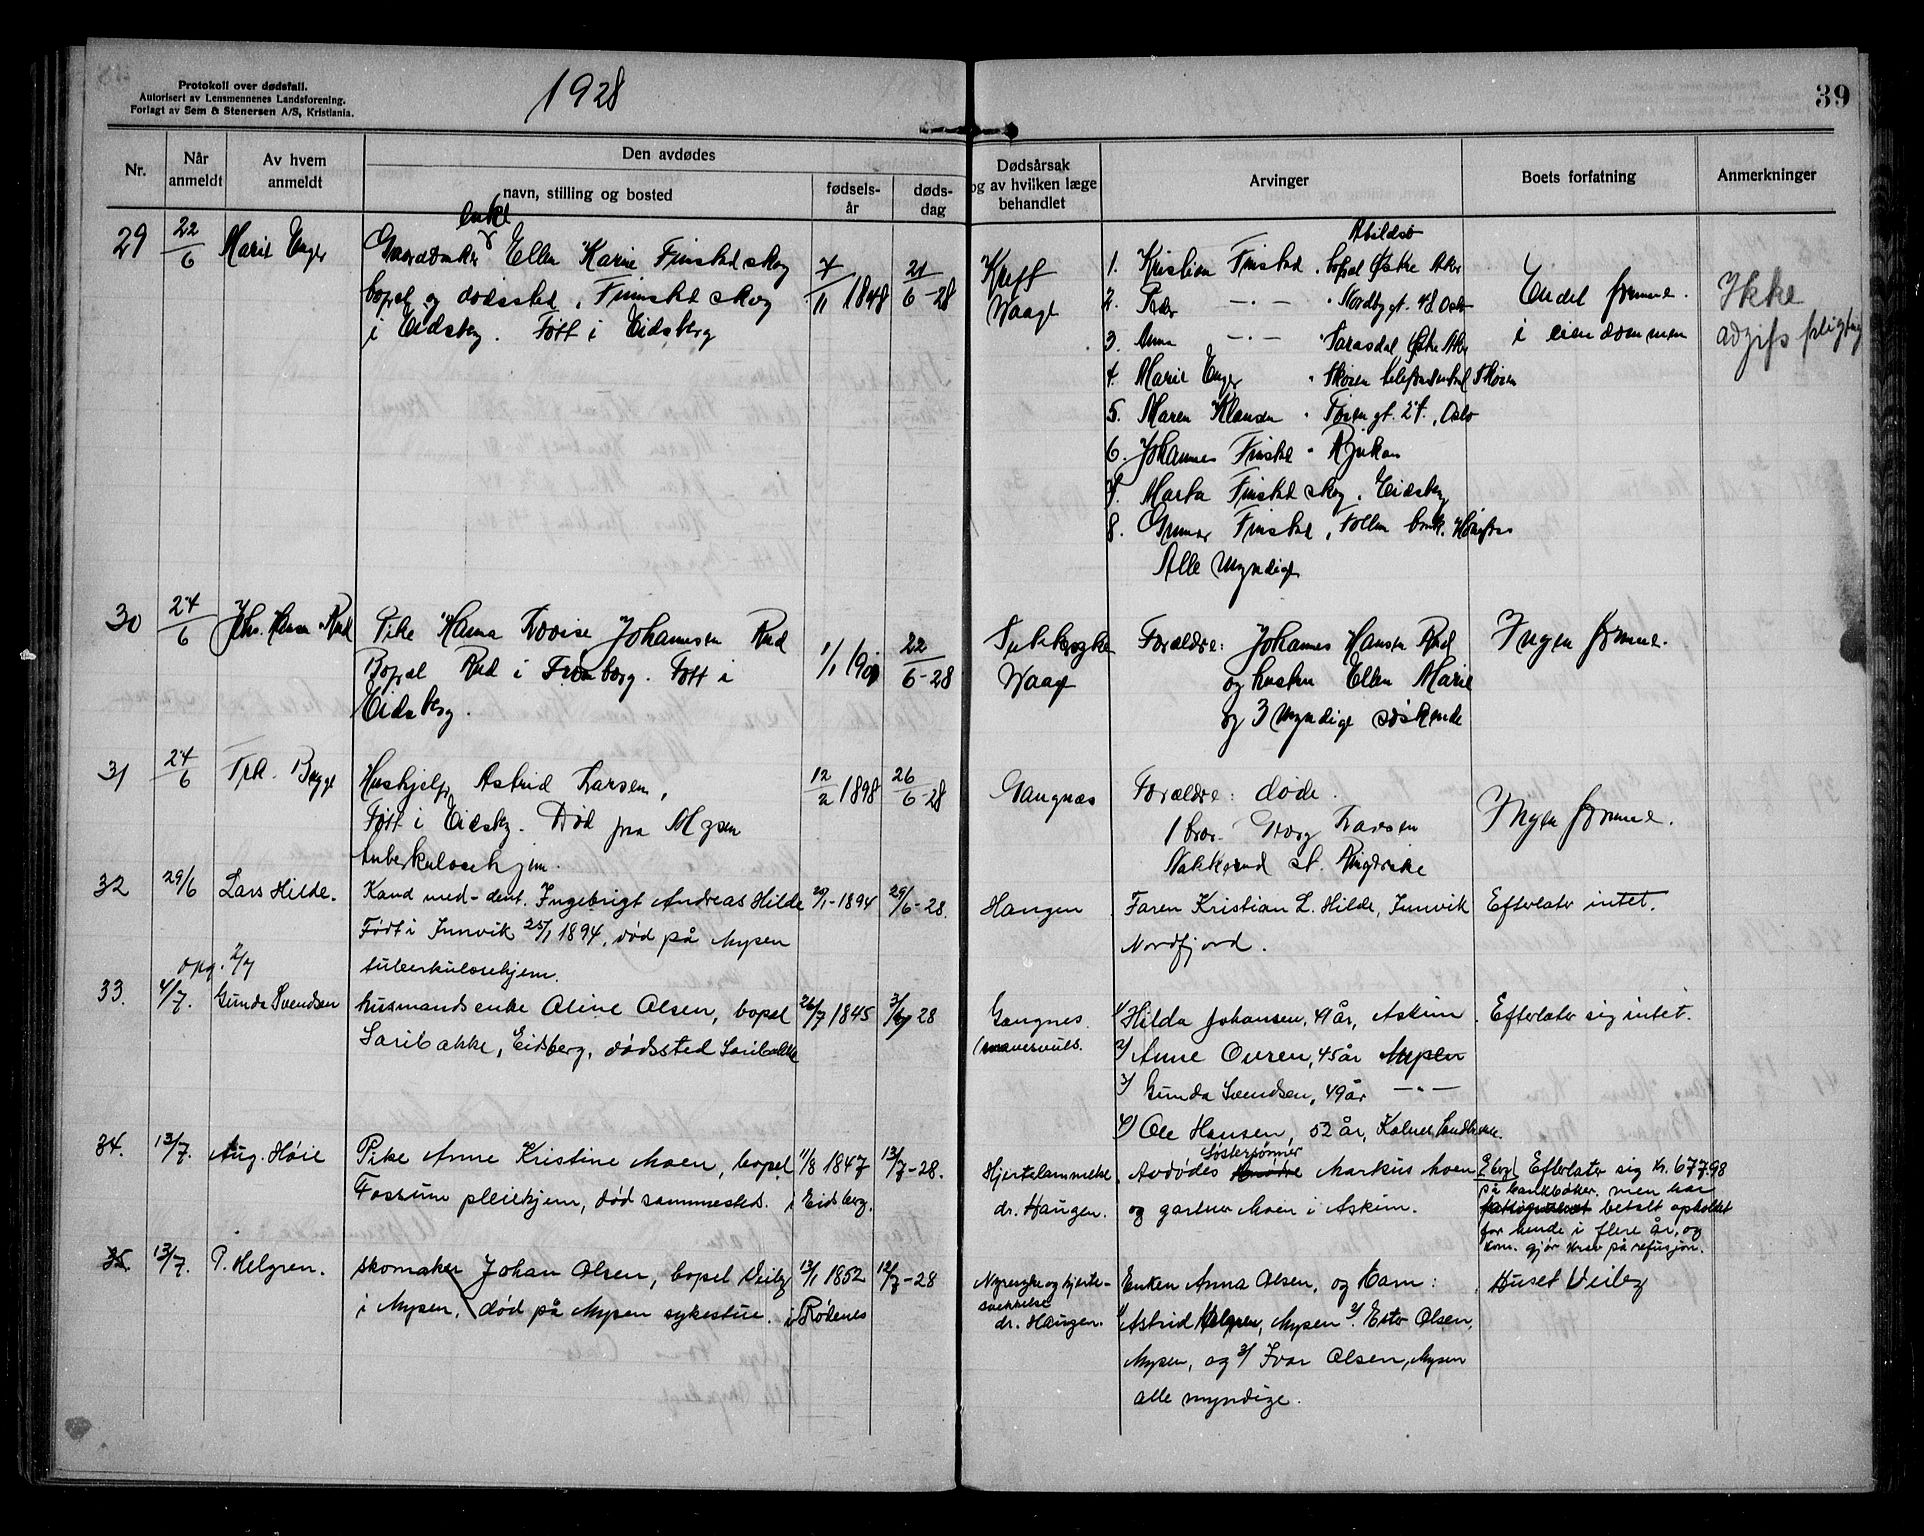 Protokoll over dødsfall.
Autorisert av Lensmennenes Landsforening.
Forlagt av Sem & Stenersen A/S, Kristiania.
1928
39
Nr.
Når anmeldt
Av hvem anmeldt
Den avdødes
navn, stilling og bosted
fødsels-år
døds-dag
Dødsårsak og av hvilken læge behandlet
Arvinger
Boets forfatning
Anmerkninger
29 22/6 Marie Enger
enke
Ellen Karine Finstadskog
bopel og dødssted, Finnstadskog
i Eidsberg. Fött i Eidsberg
7/11 1848 21/6-28
Kreft
Waage
Abildsö
1. Kristian Finstad, bopel Østre Aker
2. Peder —"— " Nordbygt. 48 Oslo
3. Anna —"— " Østre Aker
4. Marie Enger " Skøien telefoncentral Skøien
5. Maren Klausen " Tøiengt. 27, Oslo
6. Johannes Finstad " Rjukan
7. Marta Finstadskog, Eidsberg
8. Gunnar Finstad, Follum bruk, Hønefos
Alle myndige
Endel formue
i eiendommen
Ikke
avgifspligtig
30 24/6 Johs. Hansen Rud
Pike Hanna Lovise Johannesen Rud
Bopæl Rud i Trømborg. Fött i
Eidsberg.
1/1 22/6-28
Tuberkulose
Waage
Forældre: Johannes Hansen Rud
og hustru Ellen Marie
og 3 myndige søskende
Ingen formue.
31 24/6 Frk. Bugge
Hushjelp Astrid Larsen,
Fött i Eidsbg. Död fra Mysen
tuberkulosehjem.
12/2 1898 26/6-28
Gangnæs
Forældre: døde.
1 bror Georg Larsen
Nakkerud st. Ringerike
Ingen formue.
32 29/6 Lars Hilde.
Kand med-dent. Ingebrigt Andreas Hilde
Født i Innvik 25/1 1894, død på Mysen
tuberkulosehjem.
29/1-1894 29/6-28.
Haugen
Faren Kristian L. Hilde, Innvik
Nordfjord.
Efterlater intet.
opg. 2/7
33. 4/7. Gunda Svendsen
husmandsenke Aline Olsen, bopel
Saribakke, Eidsberg, dødssted Saribakke
26/7 1845 3/7 28
Gangnes.
(mavesvuls.
1/ Hilda Johansen, 49 år, Askim
2/ Anne Ouren, 45 år Mysen
3/ Gunda Svendsen, 49 år —"—
4/ Ole Hansen, 52 år, Kalnes, Sandbakken.
Efterlater sig intet.
34. 13/7. Aug. Höie
Pike Anne Kristine Moen, bopel
Fossum pleiehjem, död sammesteds. i Eidsberg.
11/8 1847 13/7-28.
Hjertelammelse
dr. Haugen.
Søstersönner
Avdødes Markus Moen
og gartner Moen i Askim.
Ebg! Efterlater sig kr. 677.98
på bankböker, men har
betalt opholdet
for hende i flere år, og
kom. gjør krav på refusjon.
35 13/7. P. Helgren.
skomaker Johan Olsen, bopel Veiby
i Mysen, död på Mysen sykestue. i Rödenes
13/1 1852 12/7-28
Nyresyke og hjerte-
svekkelse
dr. Haugen.
Enken Anna Olsen, og barn:
1/ Astrid Helgren, Mysen 2/ Ester Olsen,
Mysen, og 3/ Ivar Olsen, Mysen
alle myndige.
Huset Veiby